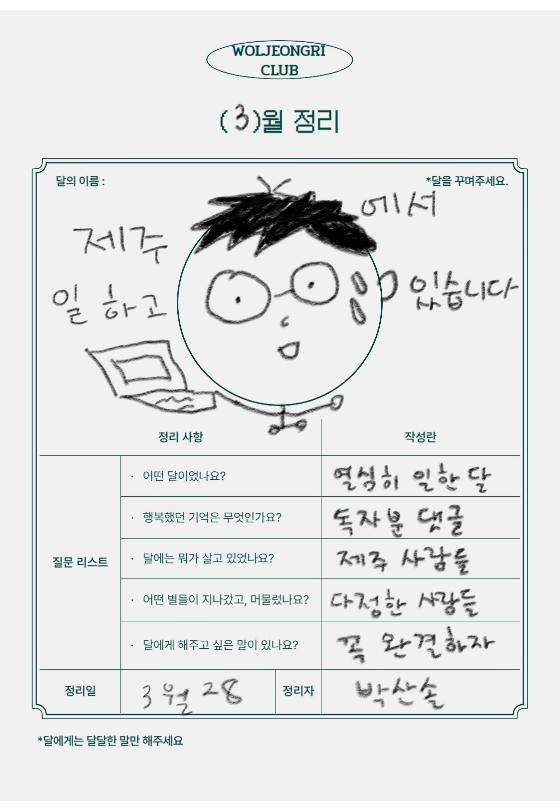 WOLJEONGRI
CLUB
(3)월 정리
달의 이름 :
*달을 꾸며주세요.
제주 에서
일 하고 있습니다
정리 사항 작성란
질문 리스트
· 어떤 달이었나요? 열심히 일한 달
· 행복했던 기억은 무엇인가요? 독자분 댓글
· 달에는 뭐가 살고 있었나요? 제주 사람들
· 어떤 별들이 지나갔고, 머물렀나요? 다정한 사람들
· 달에게 해주고 싶은 말이 있나요? 꼭 완결하자
정리일 3월 28 정리자 박산솔
*달에게는 달달한 말만 해주세요